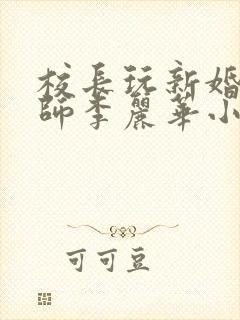 校長玩新婚
師李麗華小
可可豆